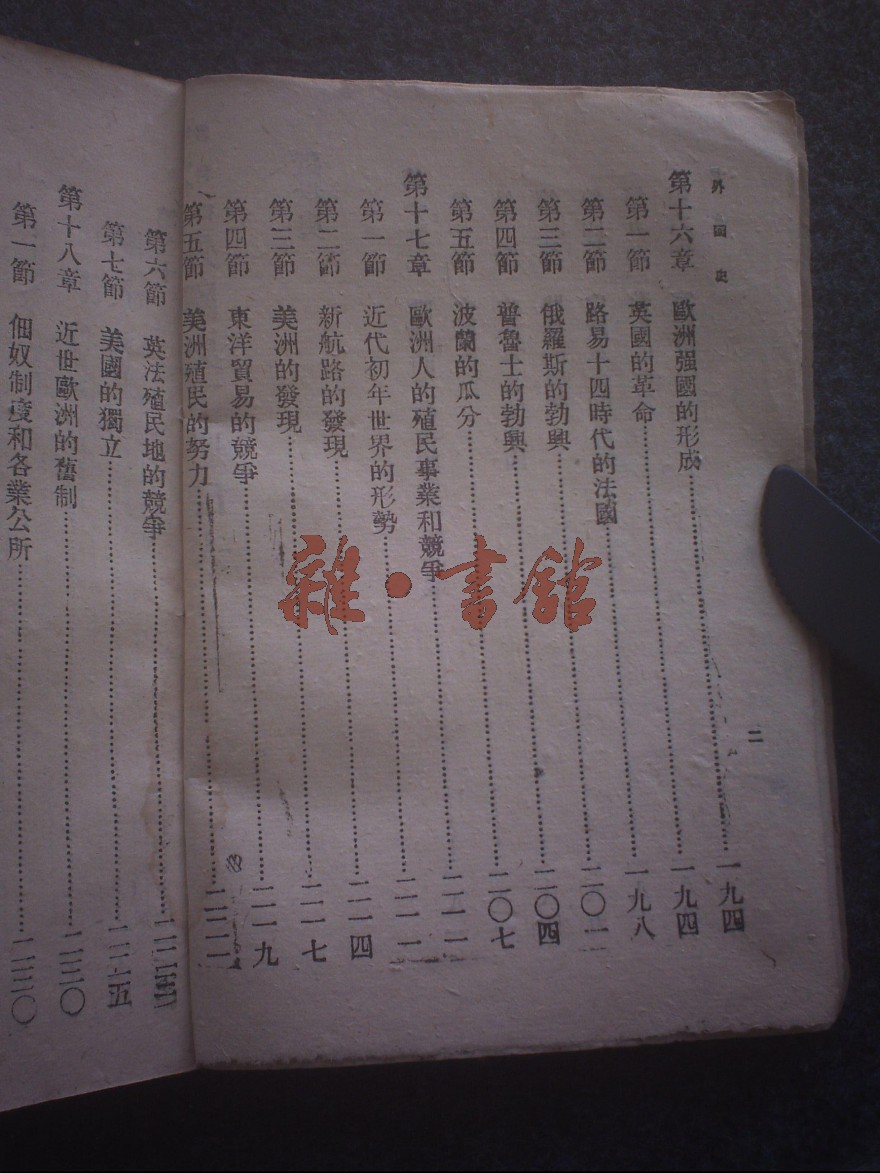 外國史
二
第十六章 歐洲强國的形成……一九四
第一節 英國的革命……一九四
第二節 路易十四時代的法國……一九八
第三節 俄羅斯的勃興……二〇一
第四節 普魯士的勃興……二〇四
第五節 波蘭的瓜分……二〇七
第十七章 歐洲人的殖民事業和競爭……二一一
第一節 近代初年世界的形勢……二一一
第二節 新航路的發現……二一四
第三節 美洲的發現……二一七
第四節 東洋貿易的競爭……二一九
第五節 美洲殖民的努力……二二一
第六節 英法殖民地的競爭……二二三
第七節 美國的獨立……二二五
第十八章 近世歐洲的舊制……二三〇
第一節 佃奴制度和各業公所……二三〇
雜·書館